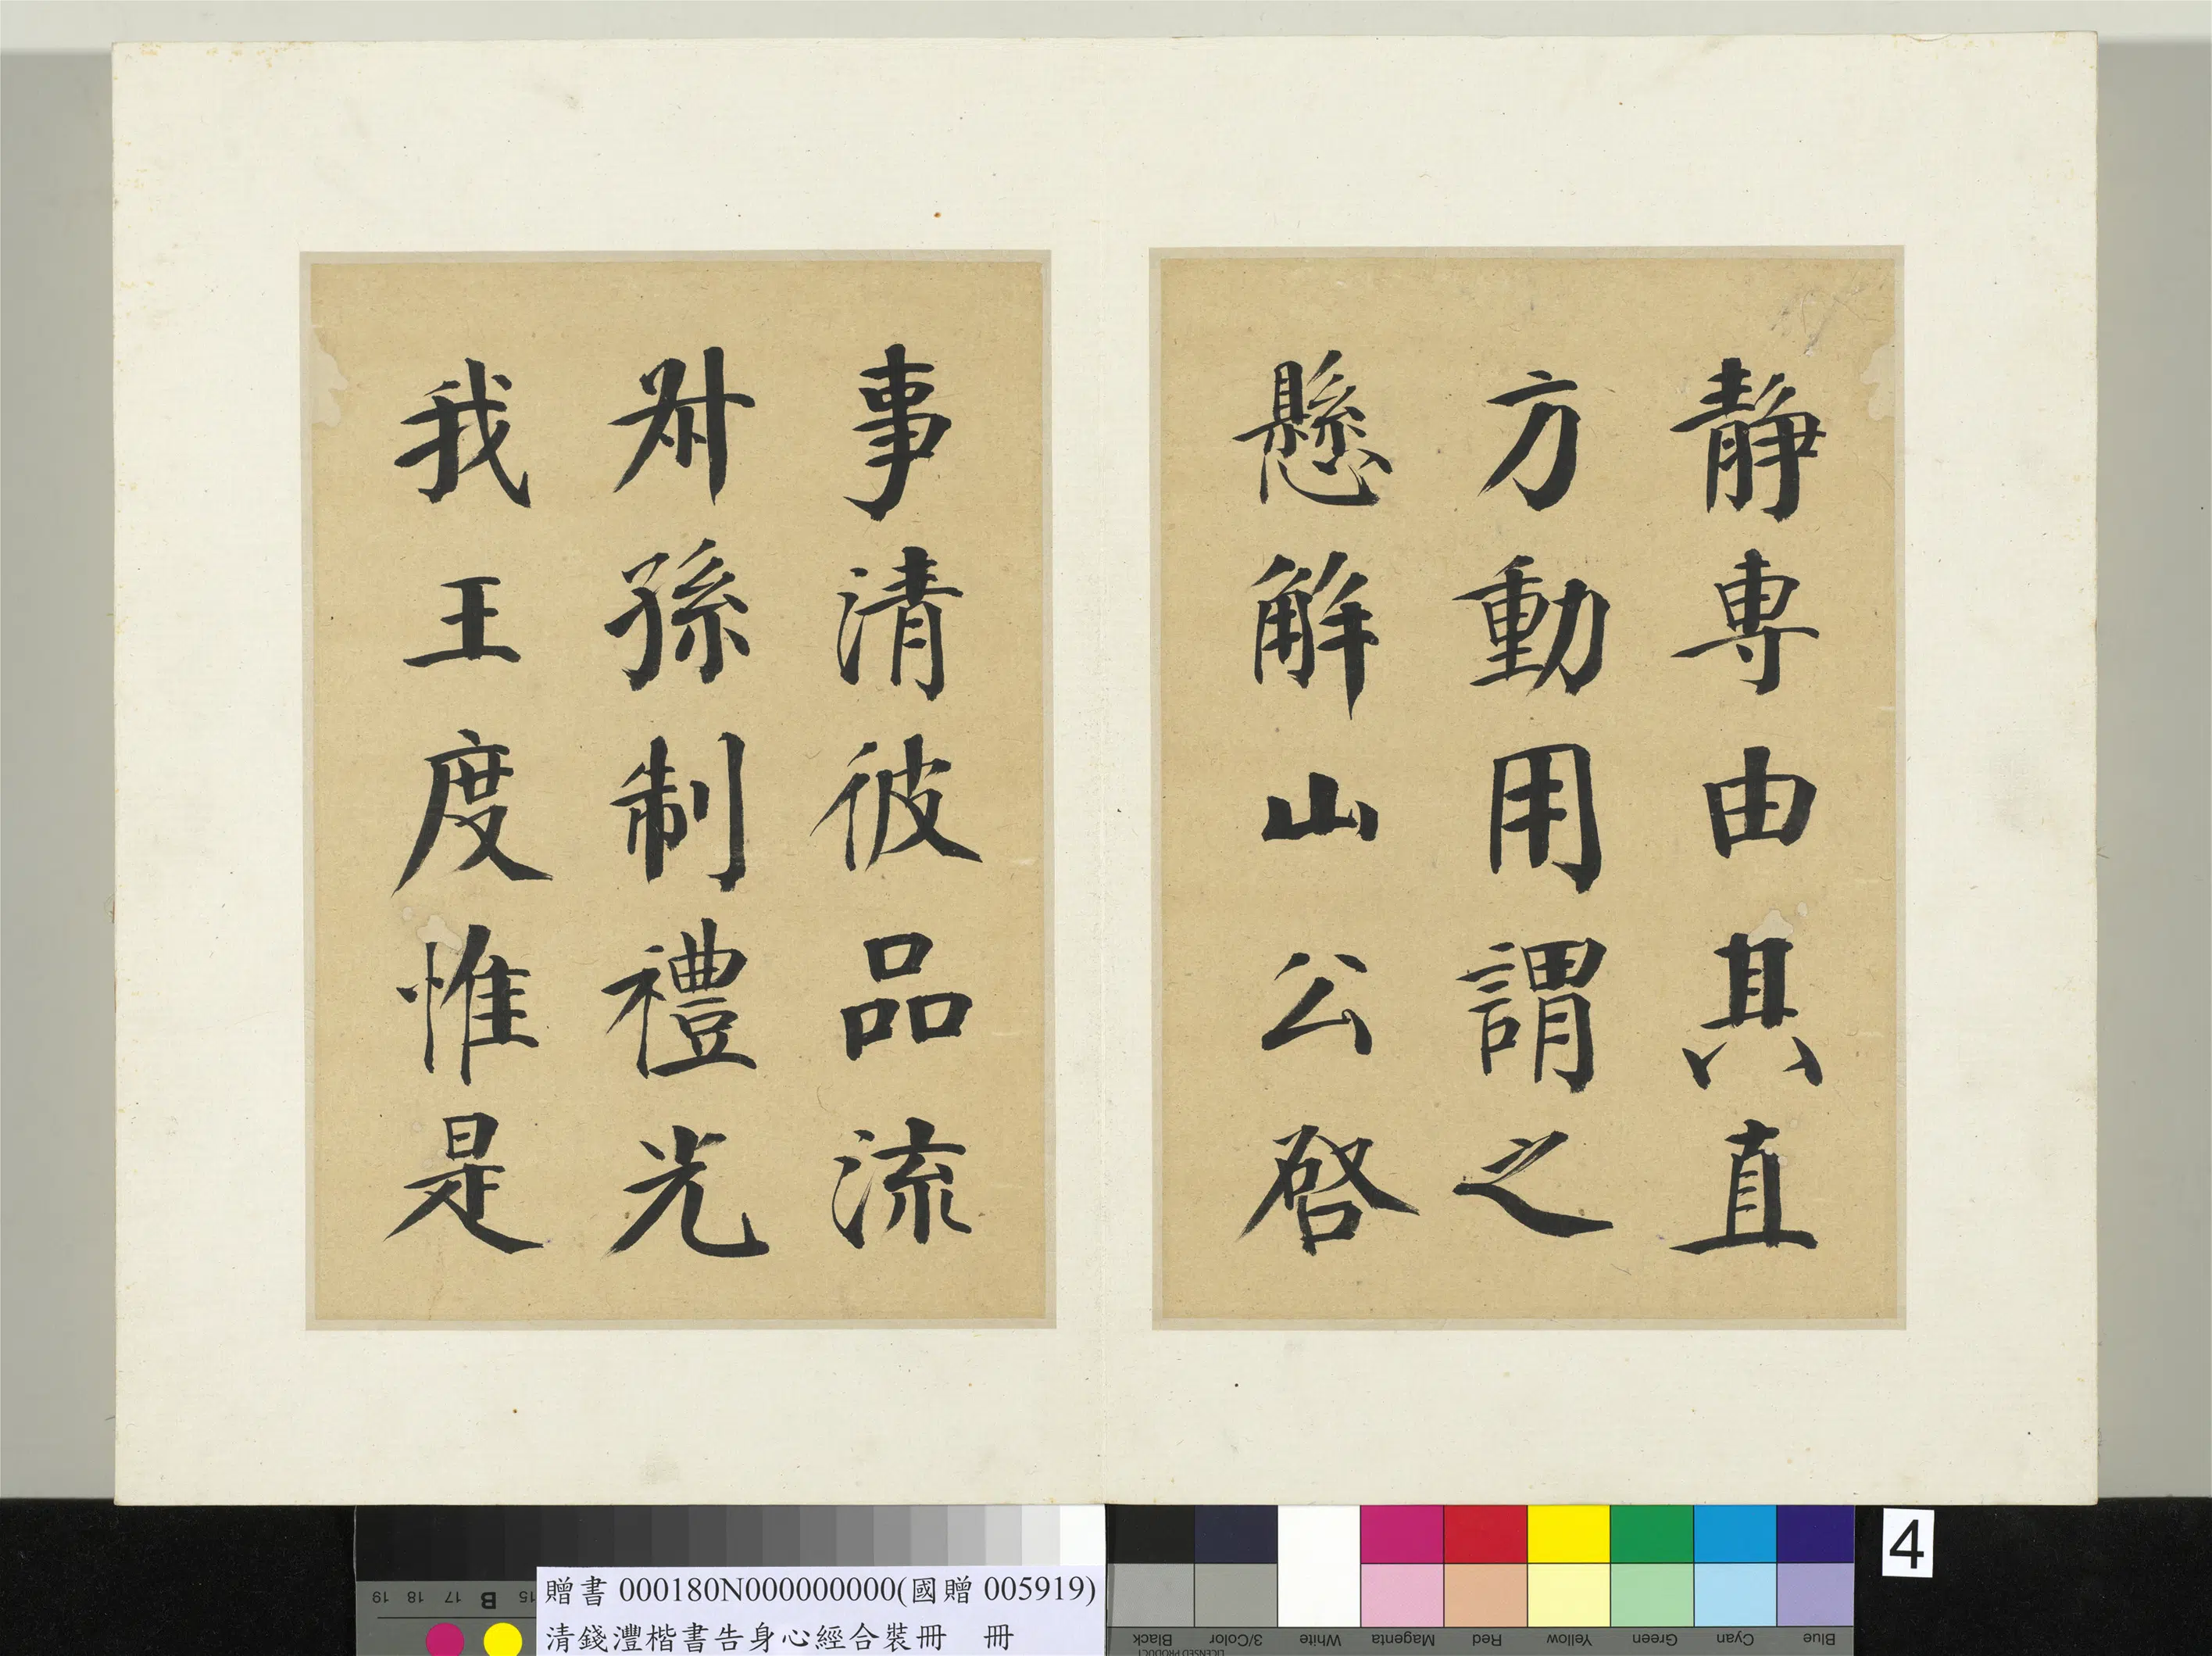 靜專由其直
方動用謂之
懸解山公啓
事清彼品流
叔孫制禮光
我王度惟是
贈書 000180N000000000(國贈 005919)
清錢灃楷書告身心經合裝冊 冊
4
19 18 17 B 15
Black 3/Color White Magenta Red Yellow Green Cyan Blue
LICENSED PRODUCT